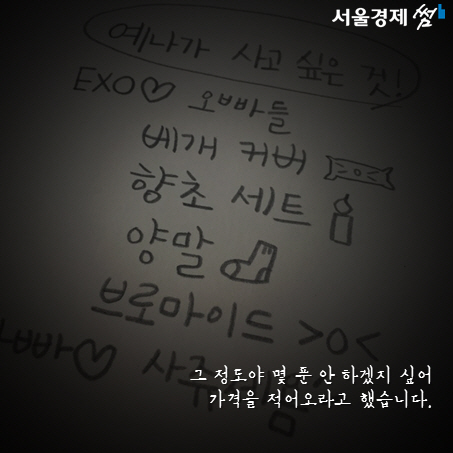 서울경제 썸
예나가 사고 싶은 것!
EXO♡ 오빠들
베개 커버
향초 세트
양말
브로마이드 >o<
그 정도야 몇 푼 안 하겠지 싶어
가격을 적어오라고 했습니다.